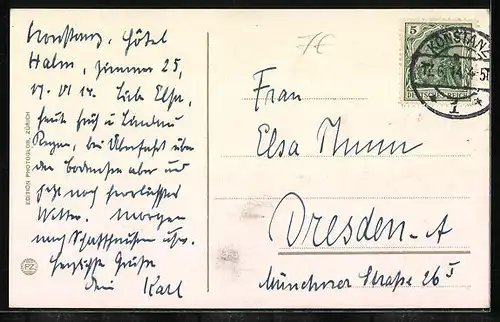 Konstanz, Hôtel
Halm, Zimmer 25,
17. VI 14. Liebe Elsa,
heute früh in Lindau
Regen, bei Überfahrt über
den Bodensee aber und
jetzt noch herrlichstes
Wetter. Morgen
nach Schaffhausen usw.
Herzlichste Grüße
dein Karl
EDITION PHOTOGLOB, ZÜRICH
PZ
7€
Frau
Elsa
Dresden-A
Münchner Straße 26 I
5
DEUTSCHES REICH
KONSTANZ
1